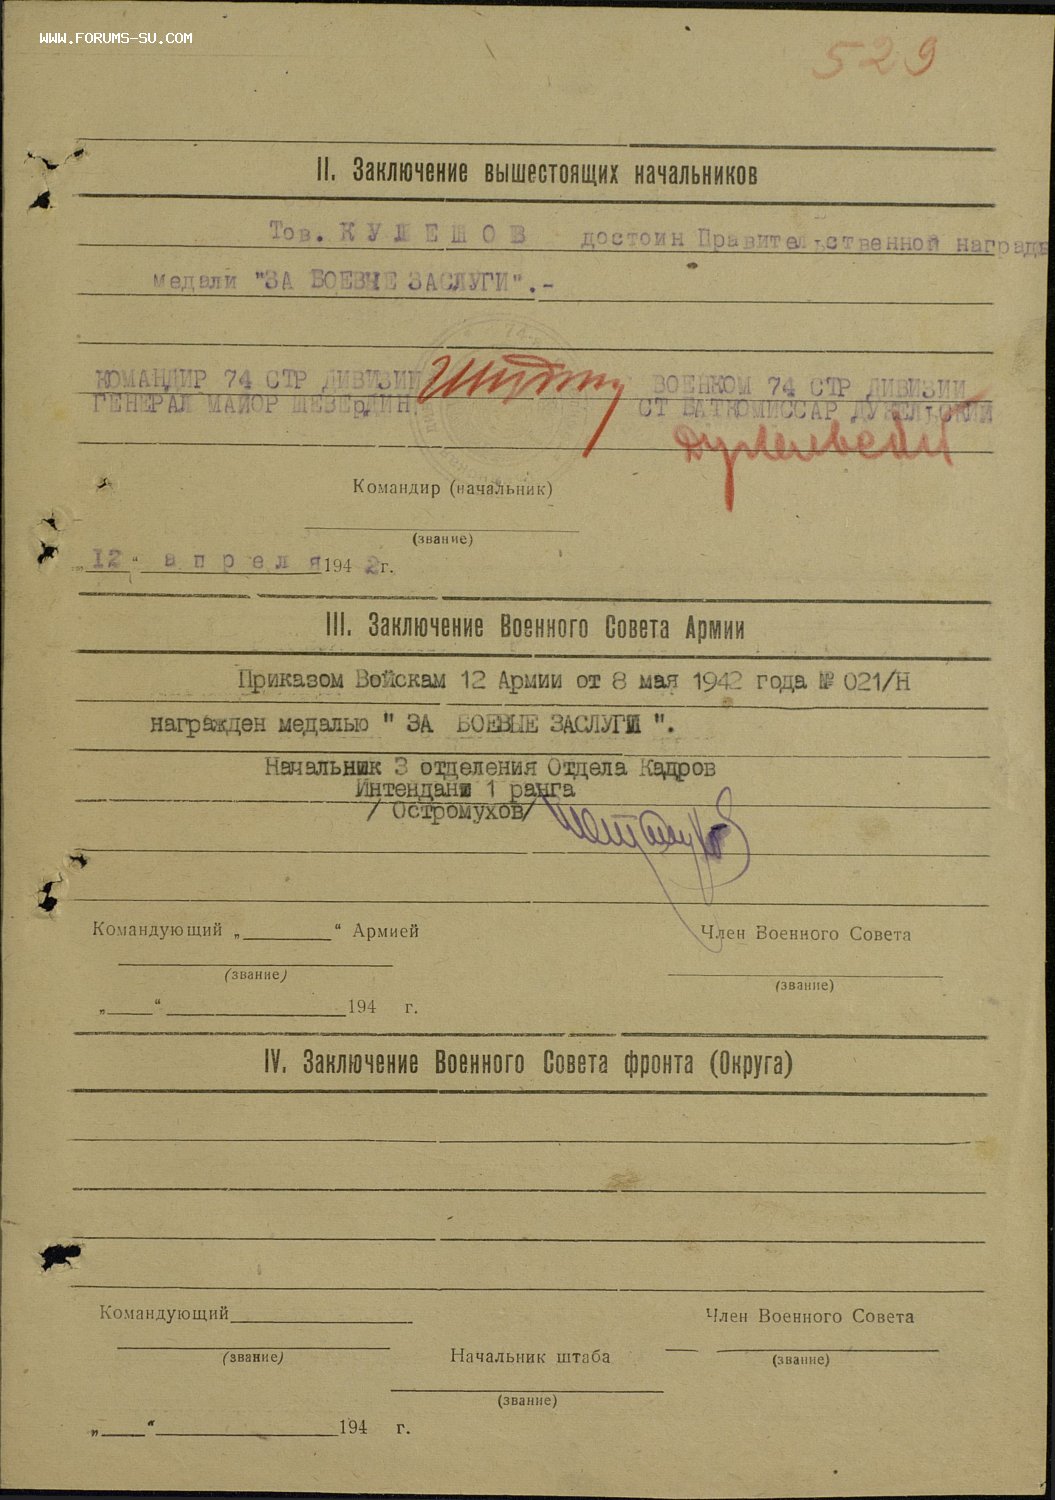 WWW.FORUMS-SU.COM
529
II. Заключение вышестоящих начальников
Тов. К У Л Е Ш О В достоин Правительственной награды
медали "ЗА БОЕВЫЕ ЗАСЛУГИ".-
КОМАНДИР 74 СТР ДИВИЗИИ
ГЕНЕРАЛ МАЙОР ШЕВЕРДИН.
ВОЕНКОМ 74 СТР ДИВИЗИИ
СТ БАТКОМИССАР ДУЖЕЛЬСКИЙ
Командир (начальник)
(звание)
„ 12 “ а п р е л я 194 2 г.
III. Заключение Военного Совета Армии
Приказом Войскам 12 Армии от 8 мая 1942 года № 021/Н
награжден медалью " ЗА БОЕВЫЕ ЗАСЛУГИ ".
Начальник 3 отделения Отдела Кадров
Интендант 1 ранга
/ Остромухов/
Командующий „ “ Армией
Член Военного Совета
(звание)
(звание)
„ “ 194 г.
IV. Заключение Военного Совета фронта (Округа)
Командующий
Член Военного Совета
(звание)
Начальник штаба
(звание)
(звание)
„ “ 194 г.